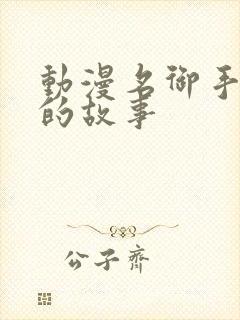 動漫名御手
的故事
公子齊